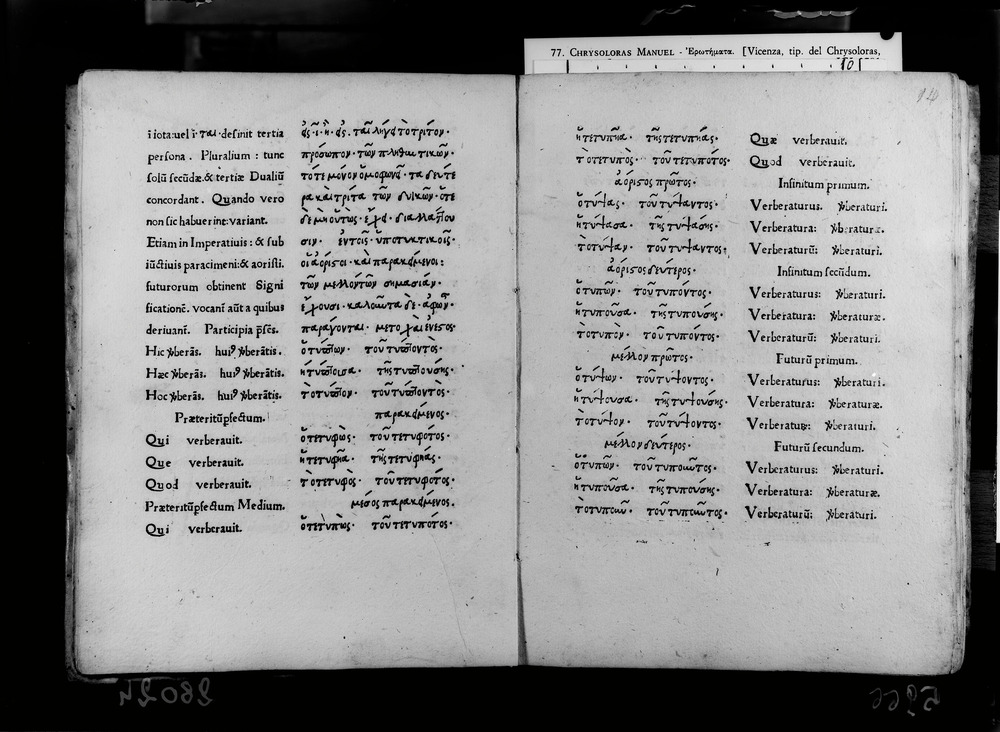 77. CHRYSOLORAS MANUEL - Ἐρωτήματα. [Vicenza, tip. del Chrysoloras,
10
ī iota: uel ī· ται · definit tertia
persona. Pluralium: tunc
solū secūdæ. & tertiæ Dualiū
concordant. Quando vero
non sic habuerint: variant.
Etiam in Imperatiuis: & sub
iūctiuis paracimeni: & aoristi.
futurorum obtinent Signi
ficationē. vocant̄ aūt a quibus
deriuant̄. Participia p̄ſēs.
Hic ꝟberās. huiꝰ ꝟberātis.
Hæc ꝟberās. huiꝰ ꝟberātis.
Hoc ꝟberās. huiꝰ ꝟberātis.
Præteritūpſectum.
Qui verberauit.
Que verberauit.
Quod verberauit.
Præteritūpſectum Medium.
Qui verberauit.
πρόσωπον· τῶν πληθυντικῶν·
τότε μόνον ὁμοφωνεῖ· τα δεύτε
ρα καὶ τρίτα τῶν δυϊκῶν· ὅτε
δὲ μὴ οὕτως· ἔχει· διαλλάττου
σιν· ἐν τοῖς ὑποτακτικοῖς·
οἱ ἀόριστοι· καὶ παρακείμενοι:
τῶν μελλόντων σημασίαν·
ἔχουσι· καλοῦνται δὲ· ἀφ' ὧν·
παράγονται· μετοχαὶ ἐνεστος·
ὁ τύπτων· τοῦ τύπτοντος·
ἡ τύπτουσα· τῆς τυπτούσης·
τὸ τύπτον· τοῦ τύπτοντος·
παρακείμενος·
ὁ τετυφὼς· τοῦ τετυφότος·
ἡ τετυφῆα· τῆς τετυφῆας·
τὸ τετυφὸς· τοῦ τετυφότος·
μέσος παρακείμενος.
ὁ τετυπὼς· τοῦ τετυπότος·
ἡ τετυπῆα· τῆς τετυπῆας· Quæ verberauit.
τὸ τετυπὸς· τοῦ τετυπότος· Quod verberauit.
ἀόριστος πρῶτος· Infinitum primum.
ὁ τύψας· τοῦ τύψαντος· Verberaturus. ꝟberaturi.
ἡ τύψασα· τῆς τυψάσης· Verberatura: ꝟberaturæ.
τὸ τύψαν· τοῦ τύψαντος· Verberaturū: ꝟberaturi.
ἀόριστος δεύτερος· Infinitum secūdum.
ὁ τυπῶν· τοῦ τυπόντος· Verberaturus: ꝟberaturi.
ἡ τυποῦσα· τῆς τυπούσης· Verberatura: ꝟberaturæ.
τὸ τυπὸν· τοῦ τυπόντος· Verberaturū: ꝟberaturi.
μέλλον πρῶτος· Futurū primum.
ὁ τύψων· τοῦ τύψοντος· Verberaturus: ꝟberaturi.
ἡ τύψουσα· τῆς τυψούσης· Verberatura: ꝟberaturæ.
τὸ τύψον· τοῦ τύψοντος· ꝟberaturi.
μέλλον δεύτερος· Futurū secundum.
ὁ τυπῶν· τοῦ τυποῦντος· Verberaturus: ꝟberaturi.
ἡ τυποῦσα· τῆς τυπούσης· Verberatura: ꝟberaturæ.
τὸ τυποῦν· τοῦ τυποῦντος· Verberaturū: ꝟberaturi.